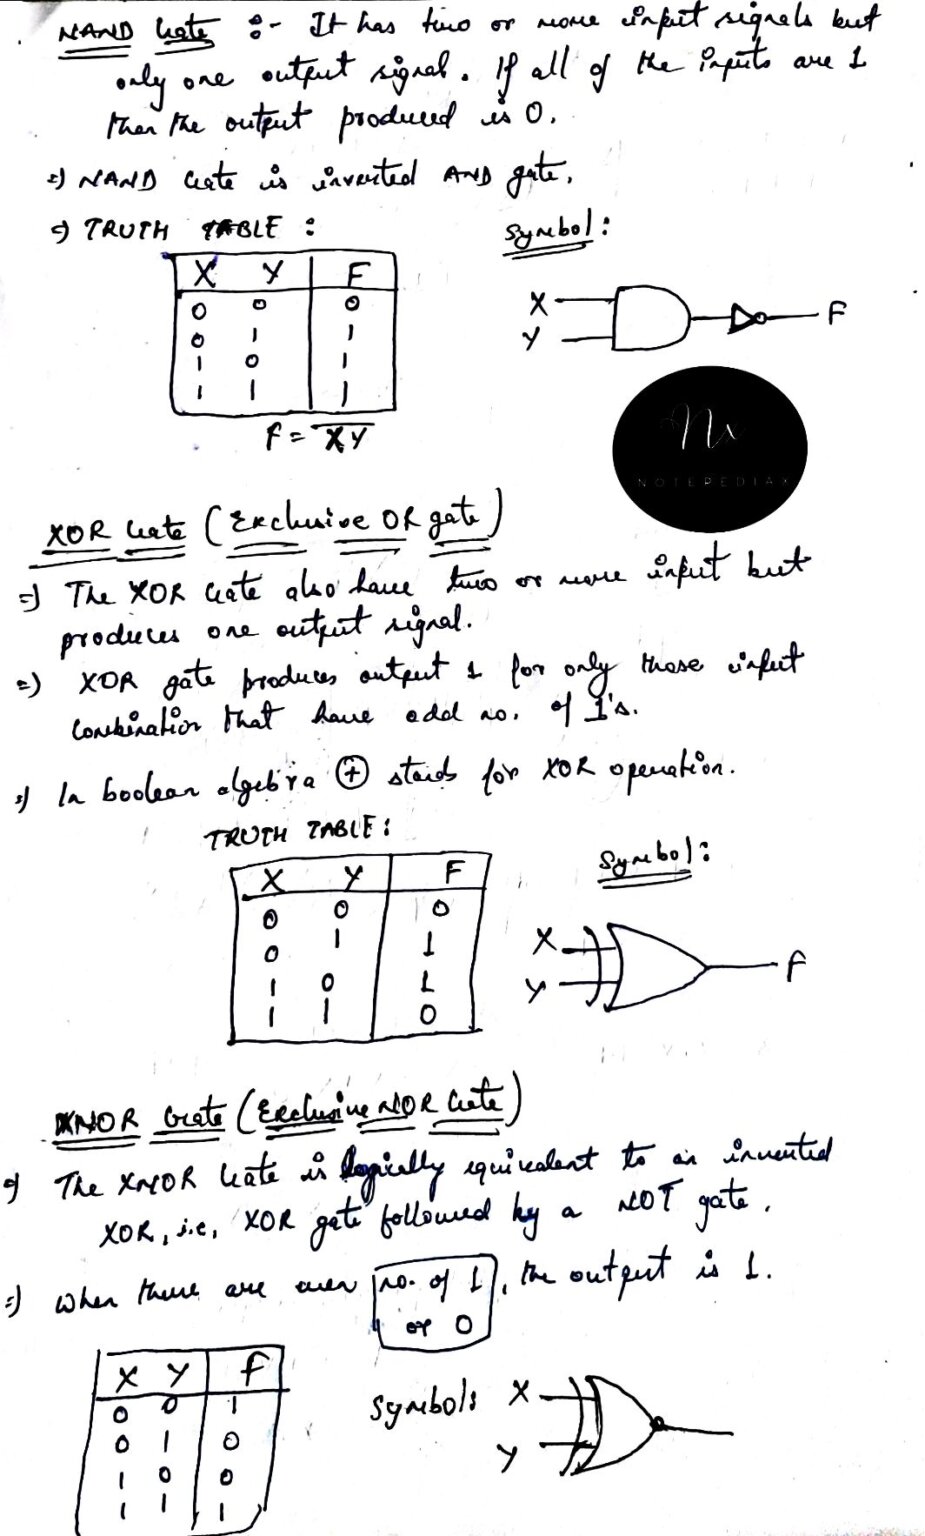 NAND Gate :- It has two or more input signals but
only one output signal. If all of the inputs are 1
then the output produced is 0.
=) NAND Gate is inverted AND gate.
=) TRUTH TABLE :
Symbol :
X Y F
0 0 0
0 1 1
1 0 1
1 1 1
F = \overline{XY}
X
Y
F
NOTEPEDIAX
XOR Gate (Exclusive OR gate)
=) The XOR Gate also have two or more input but
produces one output signal.
=) XOR gate produces output 1 for only those input
combination that have odd no. of 1's.
=) In boolean algebra ⊕ stands for XOR operation.
TRUTH TABLE :
Symbol :
X Y F
0 0 0
0 1 1
1 0 1
1 1 0
X
Y
F
XNOR Gate (Exclusive NOR Gate)
=) The XNOR Gate is logically equivalent to an inverted
XOR, i.e, XOR gate followed by a NOT gate.
=) When there are even no. of 1, the output is 1.
or 0
X Y F
0 0 1
0 1 0
1 0 0
1 1 1
Symbol :
X
Y